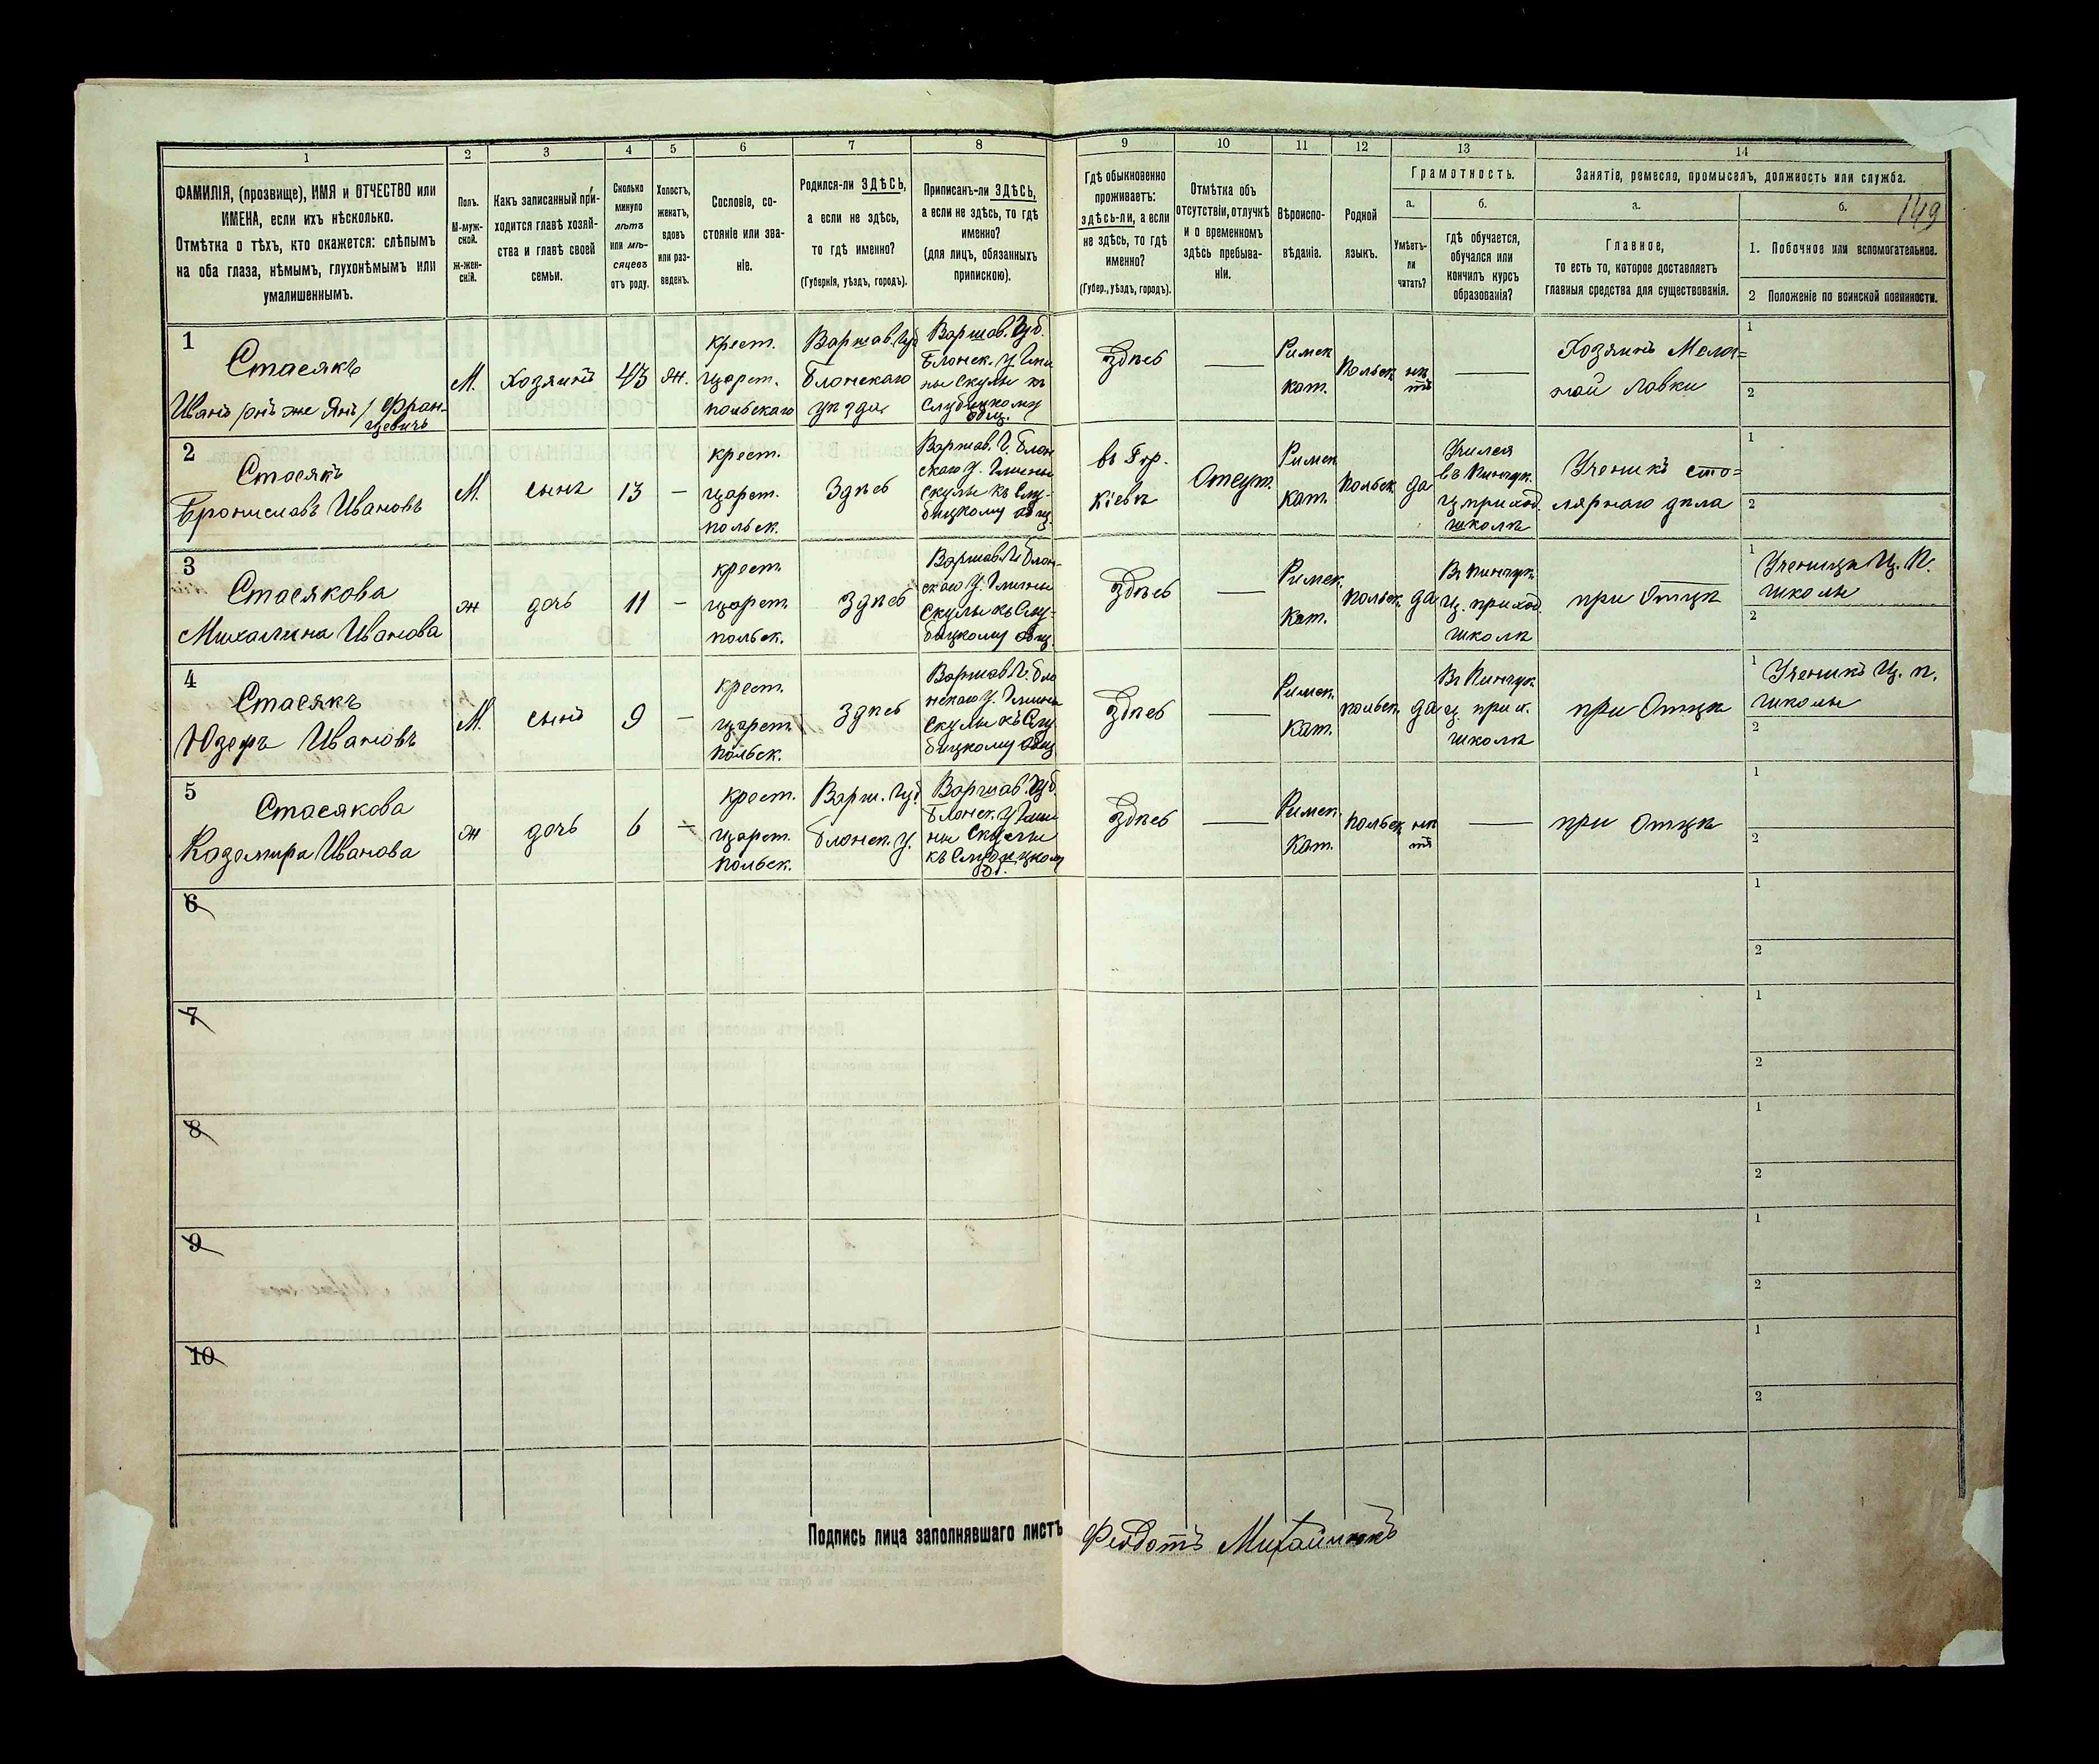 1 2 3 4 5 6 7 8 9 10 11 12 13 14
ФАМИЛІЯ, (прозвище), ИМЯ и ОТЧЕСТВО или
ИМЕНА, если ихъ нѣсколько.
Отмѣтка о тѣхъ, кто окажется: слѣпымъ
на оба глаза, нѣмымъ, глухонѣмымъ или
умалишеннымъ.
Полъ.
М-муж-
ской.
ж-жен-
скій.
Какъ записанный при-
ходится главѣ хозяй-
ства и главѣ своей
семьи.
Сколько
минуло
лѣтъ
или мѣ-
сяцевъ
отъ роду.
Холостъ,
женатъ,
вдовъ
или раз-
веденъ.
Сословіе, со-
стояніе или зва-
ніе.
Родился-ли ЗДѢСЬ,
а если не здѣсь,
то гдѣ именно?
(Губернія, уѣздъ, городъ).
Приписанъ-ли ЗДѢСЬ,
а если не здѣсь, то гдѣ
именно?
(для лицъ, обязанныхъ
припискою).
Гдѣ обыкновенно
проживаетъ:
здѣсь-ли, а если
не здѣсь, то гдѣ
именно?
(Губер., уѣздъ, городъ).
Отмѣтка объ
отсутствіи, отлучкѣ
и о временномъ
здѣсь пребыва-
ніи.
Вѣроиспо-
вѣданіе.
Родной
языкъ.
Грамотность.
а.
Умѣетъ-
ли
читать?
б.
гдѣ обучается,
обучался или
кончилъ курсъ
образованія?
Занятіе, ремесло, промыселъ, должность или служба.
а.
Главное,
то есть то, которое доставляетъ
главныя средства для существованія.
б.
149
1. Побочное или вспомогательное.
2 Положеніе по воинской повинности.
1
Стасякъ
Иванъ /онъ же Янъ/ Фран-
цевичъ
М.
Хозяинъ
43
Ж.
крест.
царст.
польскаго
Варшав. Губ
Блонскаго
уѣзда
Варшав. Губ.
Блонск. У Гми
ны Скулы къ
Слубицкому
общ.
здѣсь
Римск
кат.
Польск
нѣ
тъ
Хозяинъ Мелоч=
ной Лавки
1
2
2
Стасякъ
Брониславъ Ивановъ
М.
сынъ
13
крест.
царст.
польск.
Здѣсь
Варшав. Г. Блон
скаго У. Гмины
Скулы къ Слу-
бицкому общ.
въ Гор.
Кіевѣ
Отсут.
Римск
кат.
Польск
да
Учился
въ Пинчук.
ц. приход.
школѣ
Ученикъ сто=
лярнаго дѣла
1
2
3
Стасякова
Михалина Иванова
ж
дочь
11
крест
царст.
польск.
Здѣсь
Варшав. Г. Блон-
скаго У. Гмины
Скулы къ Слу-
бицкому общ.
Здѣсь
Римск.
Кат.
Польск.
да
Въ Пинчук.
ц. приход.
школѣ
при Отцѣ
1
Ученица Ц. П.
школы
2
4
Стасякъ
Юзефъ Ивановъ
М.
сынъ
9
крест.
царст.
польск.
Здѣсь
Варшав. Г. Бло
нскаго У. Гмины
Скулы къ Слу
бицкому общ
Здѣсь
Римск.
Кат.
польск.
да
Въ Пинчук.
ц. прих.
школѣ
при Отцѣ
1
Ученикъ Ц. п.
школы
2
5
Стасякова
Каземира Иванова
ж
дочь
6
крест.
царст.
польск.
Варш. Губ
Блонск. У.
Варшав. Губ.
Блонск. У Гми
ны Скулы
къ Слубицкому
об.
Здѣсь
Римск.
Кат.
Польск
нѣ
тъ
при Отцѣ
1
2
6
1
2
7
1
2
8
1
2
9
1
2
10
1
2
Подпись лица заполнявшаго листъ
Феодотъ